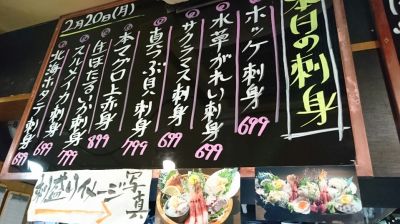 本日の刺身
2月20日(月)
ホッケ刺身 699
水草がれい刺身 699
サクラマス刺身 699
真つぶ貝刺身 699
本マグロ上赤身 799
生ほたるいか刺身 899
スルメイカ刺身 799
北海ホタテ刺身 699
刺し盛りイメージ写真